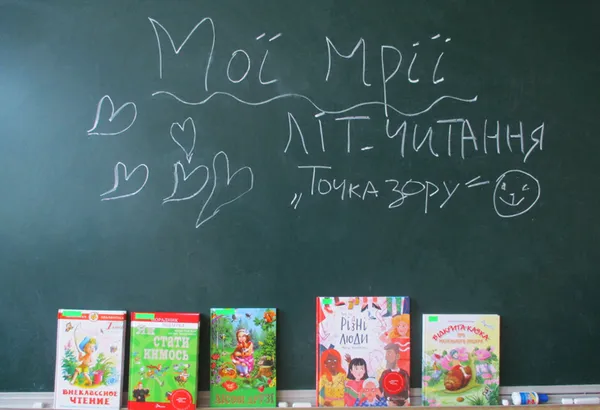 Мої мрії
ЛІТ-ЧИТАННЯ
„Точка зору"
ВНЕКЛАССНОЕ ЧТЕНИЕ
ЯК СТАТИ КИМОСЬ
РІЗНІ ЛЮДИ
ВІДКРИТА КАЗКА